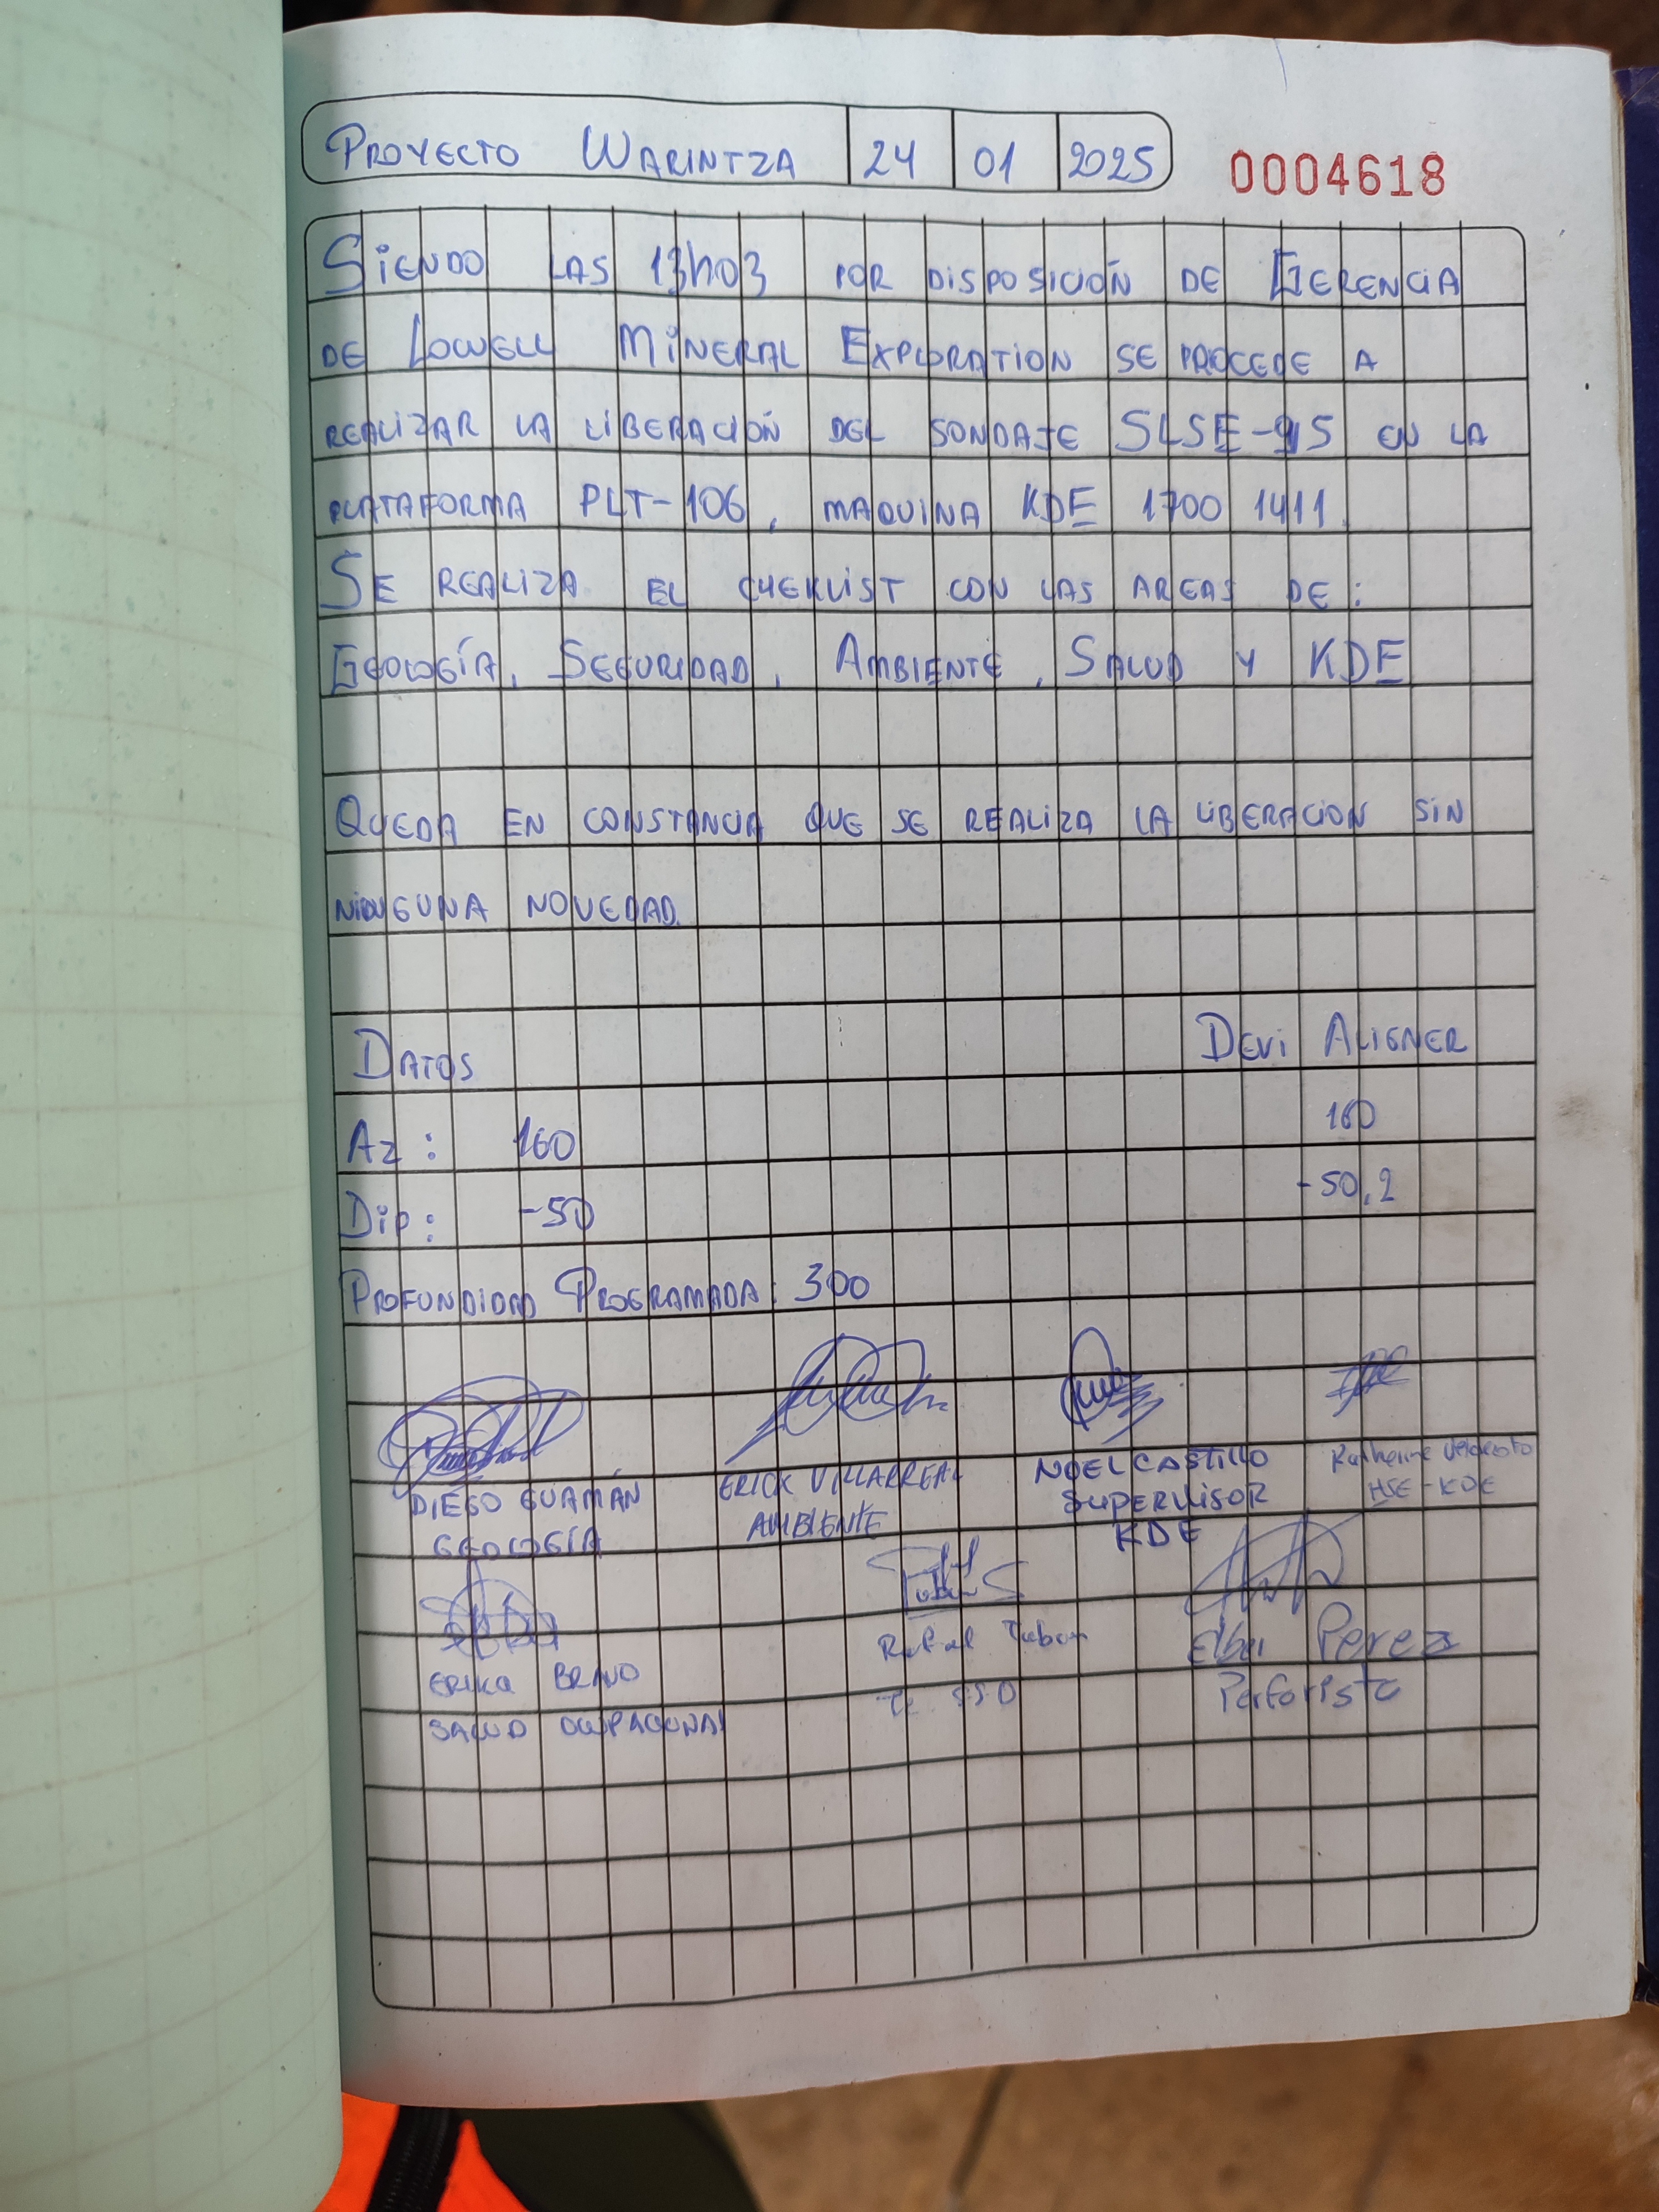 PROYECTO WARINTZA 24 01 2025 0004618
SIENDO LAS 13h03 POR DISPOSICIÓN DE GERENCIA
DE LOWELL MINERAL EXPLORATION SE PROCEDE A
REALIZAR LA LIBERACIÓN DEL SONDAJE SLSE-95 EN LA
PLATAFORMA PLT-106, MAQUINA KDE 1700 1411.
SE REALIZA EL CHEKLIST CON LAS AREAS DE:
GEOLOGÍA, SEGURIDAD, AMBIENTE, SALUD Y KDE
QUEDA EN CONSTANCIA QUE SE REALIZA LA LIBERACION SIN
NINGUNA NOVEDAD.
DATOS DEVI ALIGNER
AZ: 160 160
DIP: -50 -50,2
PROFUNDIDAD PROGRAMADA: 300
DIEGO GUAMÁN ERICK VILLARREAL NOEL CASTILLO Katherine
GEOLOGÍA AMBIENTE SUPERVISOR HSE-KDE
KDE
ERIKA BRAVO Rafael Elber Perez
SALUD OCUPACIONAL SSO Perforista